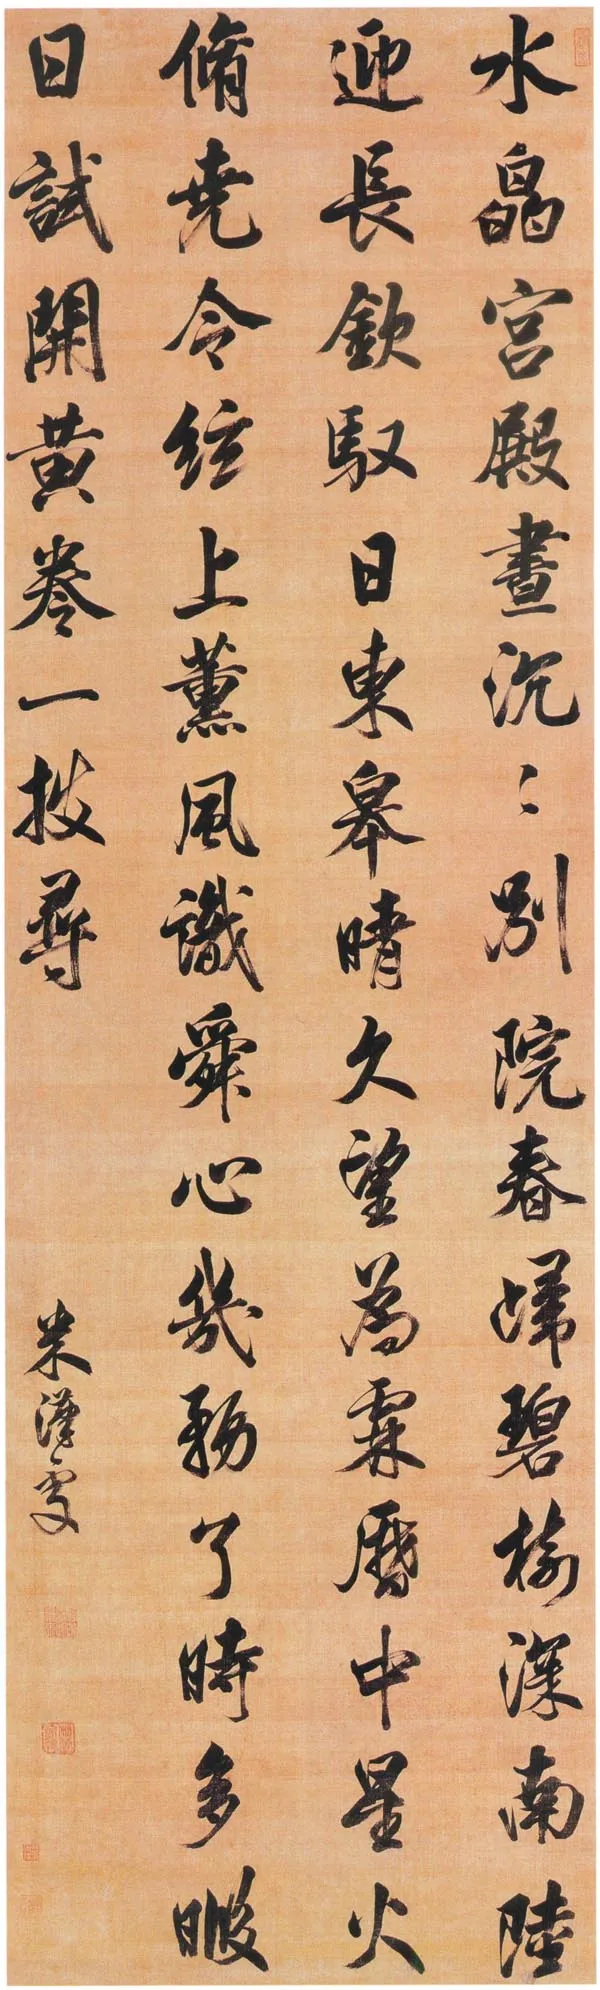 水晶宮殿晝沉〻別院春歸碧榆深南陸
迎長欽馭日東皋晴久望為霖曆中星火
脩堯令絃上薰風識舜心幾務了時多暇
日試開黃卷一披尋
米漢雯